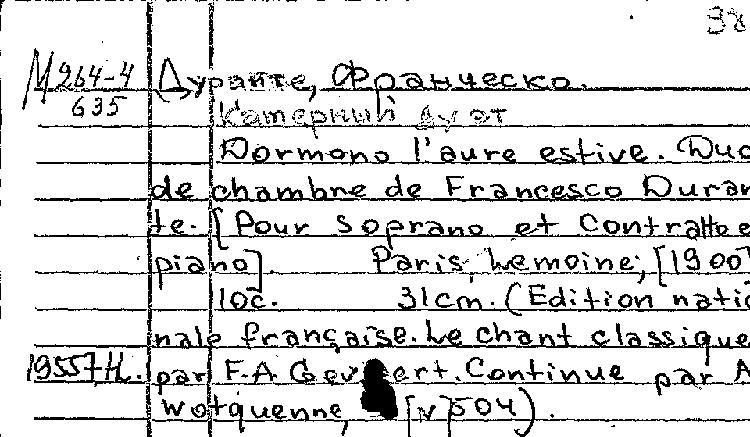 38
М 264-4 Дуранте, Франческо.
635
Камерный дуэт
Dormono l'aure estive. Duo
de chambre de Francesco Duran
te. [Pour Soprano et Contralto e
piano]. Paris, Lemoine, [1900]
10с. 31cm. (Edition natio
nale française. Le chant classique
19557H. par F.A. Gevaert. Continue par A
Wotquenne, [N]504).